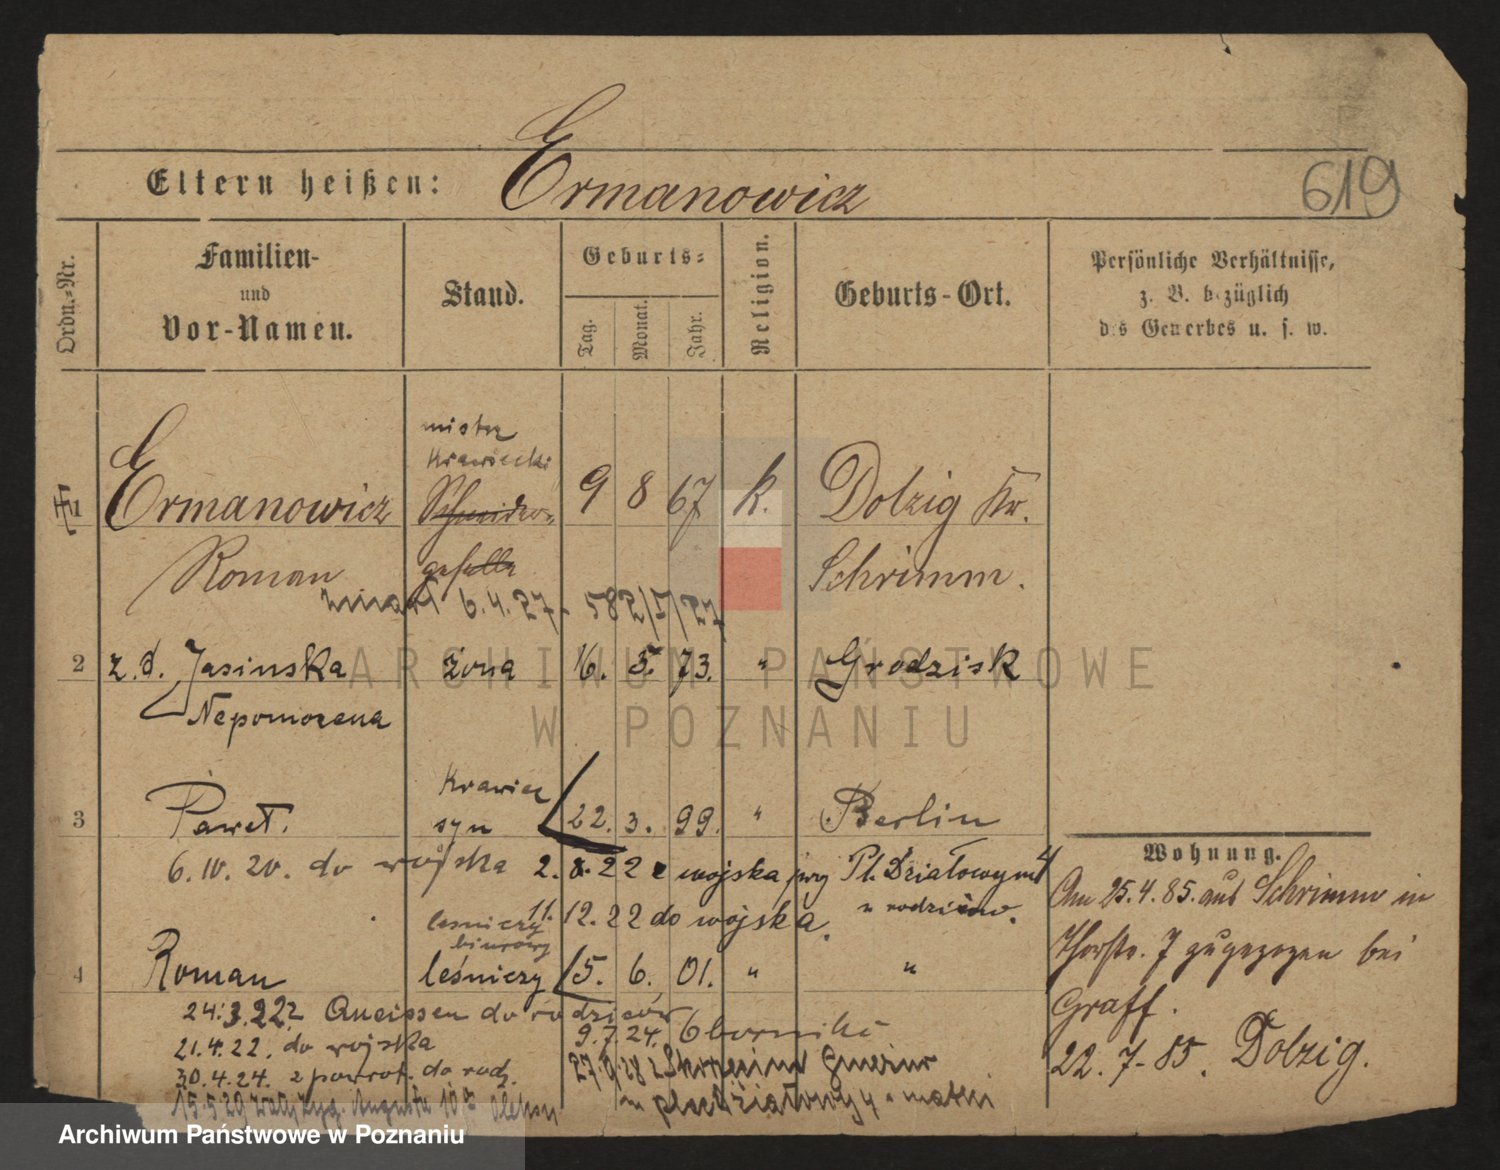 Eltern heißen: Ermanowicz
619
Ordn.-Nr.
Familien-
und
Vor-Namen.
Stand.
Geburts-
Tag.
Monat.
Jahr.
Religion.
Geburts-Ort.
Persönliche Verhältnisse,
z. B. bezüglich
des Gewerbes u. s. w.
mistrz
krawiecki
1 Ermanowicz Schneider- 9 8 67 k. Dolzig Kr.
Roman geselle Schrimm.
zmarł 6.4.27 - 582/I/27
2 z.d. Jasinska żona 16. 5. 73. " Grodzisk
Nepomozena
krawiec
3 Paweł. syn 22. 3. 99. " Berlin
6.10.20. do wojska 2. 8. 22 z wojska przy Pl. Działowym 4
11. 12. 22 do wojska. u rodziców.
leśniczy
biurowy
4 Roman leśniczy 5. 6. 01. " "
24.3.22 z Queissen do rodziców
9.7.24. Oborniki
21.4.22. do wojska
27.9.28 z
30.4.24. z powrot. do rodz.
pl. Działowy 4 u matki
15.5.29
Wohnung.
Am 25.4.85. aus Schrimm in
Thorstr. 7 zugezogen bei
Graff.
22.7.-85. Dolzig.
ARCHIWUM PAŃSTWOWE
W POZNANIU
Archiwum Państwowe w Poznaniu